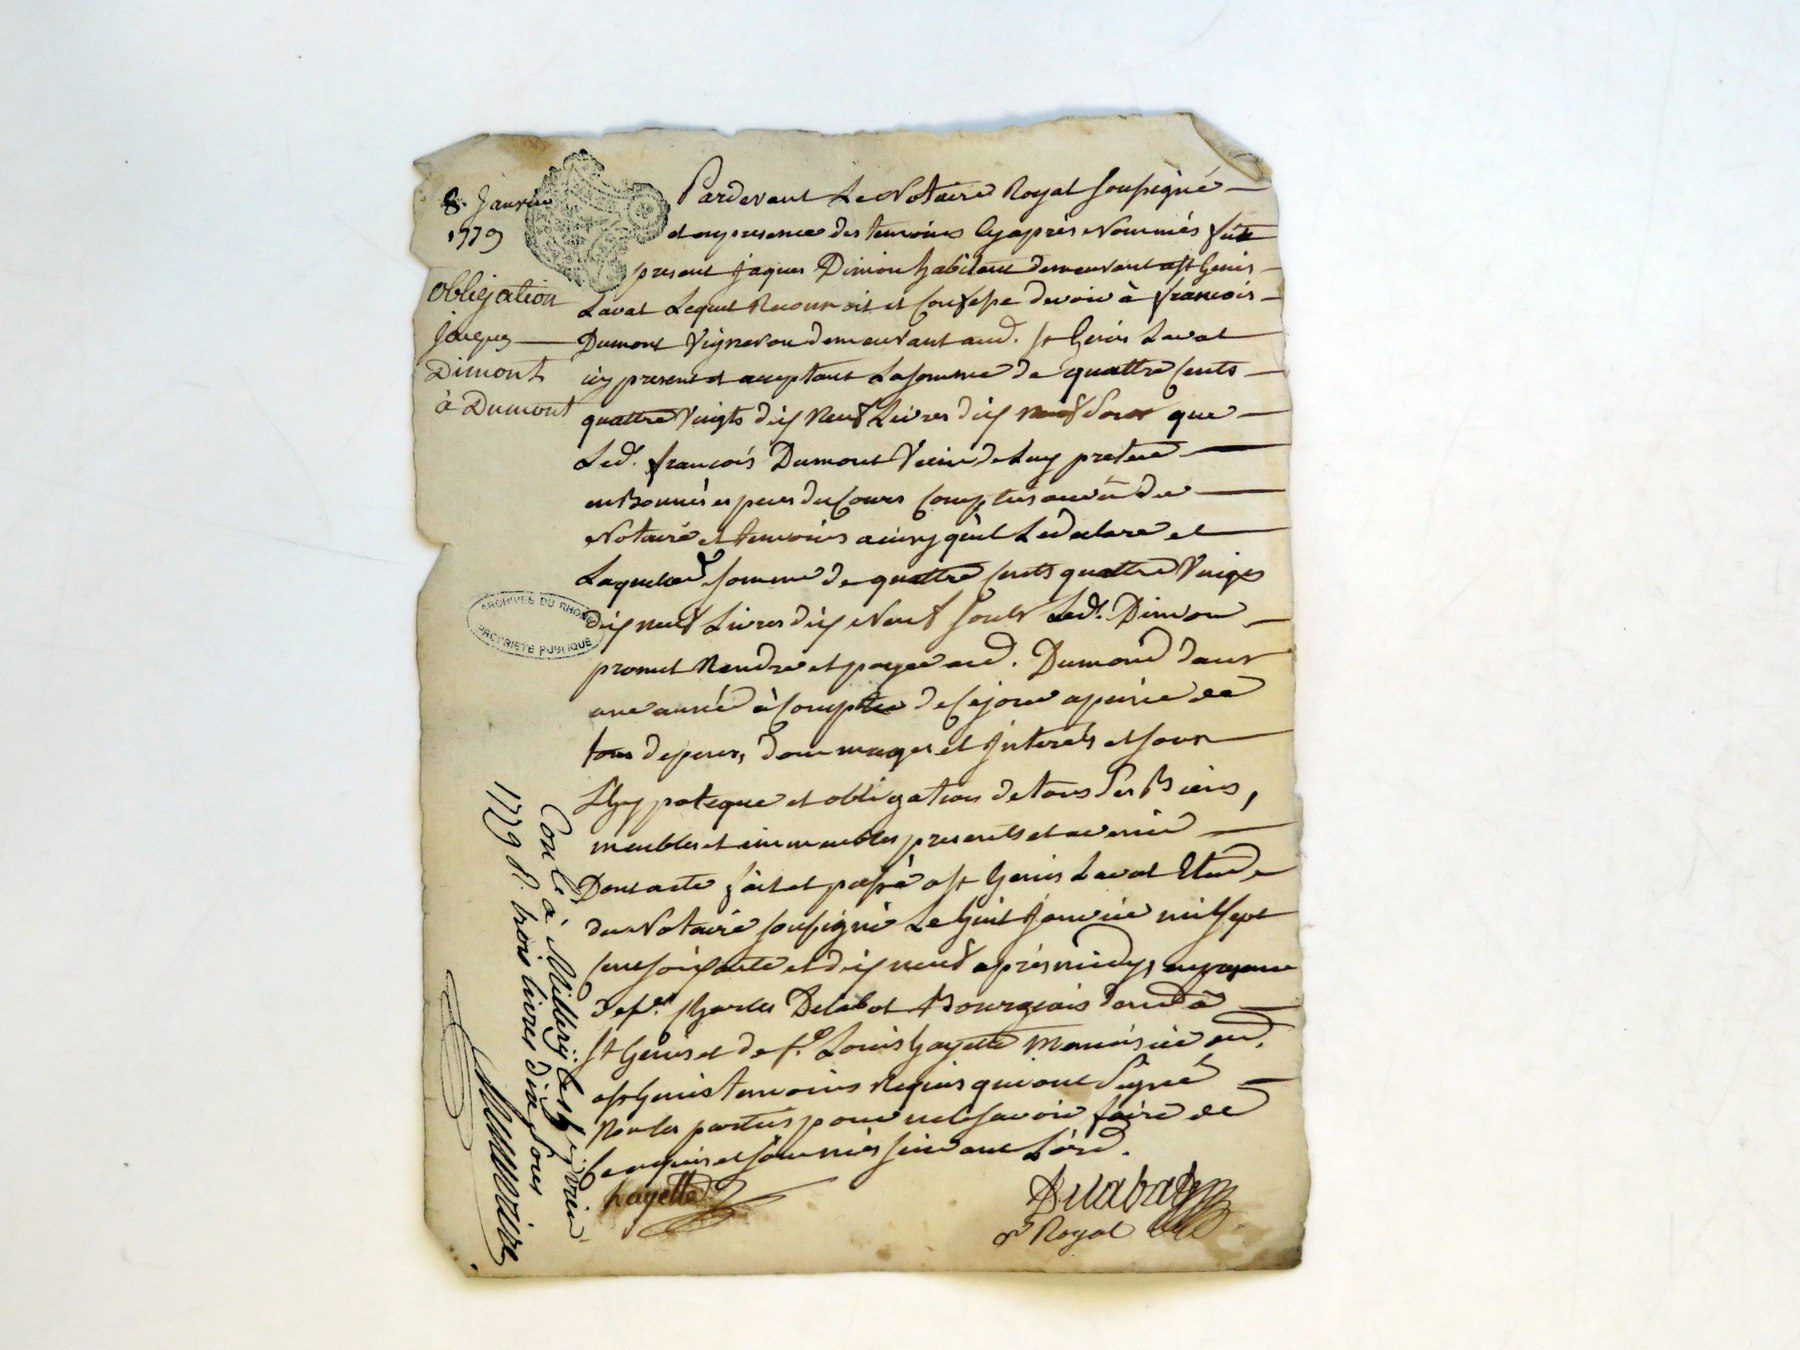 8. Janvier
1779
Obligation
Jaques
Dimont
à Dumont
Pardevant Le Notaire Royal soussigné
et en presence des temoins cy après Nommés fut
present Jaques Dimon habitant demeurant a st Genis
Laval Lequel Reconnoit et Confesse devoir à françois
Dumont Vigneron demeurant aud. st Genis Laval
icy present et acceptant La somme de quattre Cents
quattre Vingts dix Neuf Livres dix neuf sous que
Led. françois Dumont Vient de Luy preter
en Bonnes especes du Cours Comptés au vû du
Notaire et temoins ainsy qu'il Le declare et
Laquelle somme de quattre Cents quattre Vingts
dix neuf Livres dix Neuf sous Led. Dimon
promet Rendre et payer aud. Dumond dans
une année à Compter de Ce jour a peine de
tous depens, dommages et Interets et sous
L'hypoteque et obligation de tous ses Biens,
meubles et immeubles presents et avenir
Dont acte fait et passé a st Genis Laval Etude
du Notaire soussigné Le huit Janvier mil sept
Cent soixante et dix neuf après midy, en presence
de sr. Charles Delabat Bourgeois dud.
st Genis et de sr. Louis hayette Menuisier dem.
a st Genis temoins Requis qui ont signé
Non les parties pour ne le savoir faire de
Ce enquis et sommés suivant L'ord.
hayette
Delabat
Royal
Con.lé à Millery le
1779 R. trois livres dix sous
ARCHIVES DU RHONE
PROPRIETE PUBLIQUE